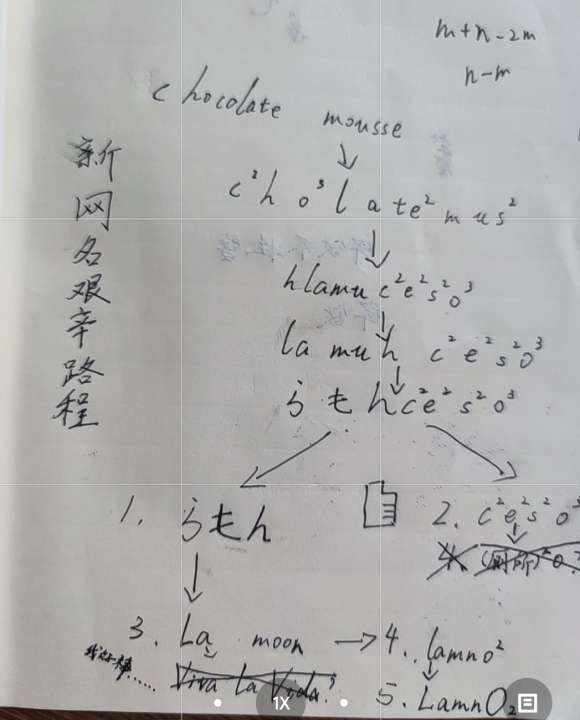 m+n-2m
n-m
chocolate mousse
↓
c²h o³ l a te² m u s²
↓
hlamu c²e²s²o³
↓
la mu h c²e²s²o³
↓
らもh c²e²s²o³
新网名艰辛路程
1. らもh
2. c²e²s²o³
↓
4. (厕所)²o³
↓
3. La moon → 4. lamno²
Viva La Vida?
↓
5. LamnO₂
1X